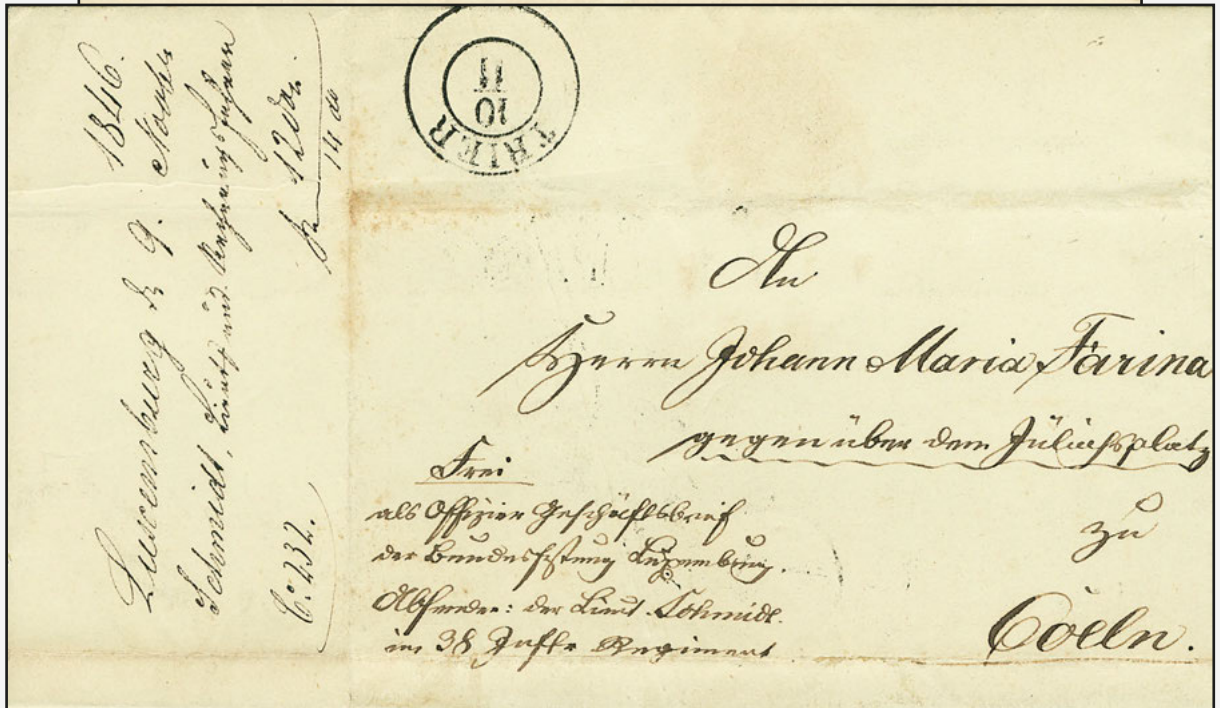 1846.
Luxemburg d. 9. Novbr
Schmidt, Lieut. und Rechnungsführer
12 do.
14 do
C: 232.
TRIER
10
11
An
Herrn Johann Maria Farina
gegenüber dem Jülichsplatz
zu
Coeln.
Frei
als Offizier Geschäftsbrief
der Bundesfestung Luxemburg.
Absender: der Lieut. Schmidt.
im 38 Inftr Regiment